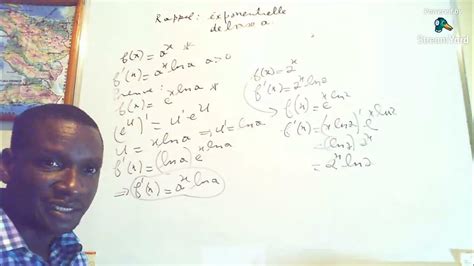 Rappel: exponentielle
de base a.
f(x) = a^x *
f'(x) = a^x ln a a>0
Preuve:
f(x) = e^{x ln a} *
(e^u)' = u' e^u
u = x ln a => u' = ln a
f'(x) = (ln a) e^{x ln a}
=> f'(x) = a^x ln a
f(x) = 2^x
f'(x) = 2^x ln 2
f(x) = e^{x ln 2}
f'(x) = (x ln 2)' e^{x ln 2}
= (ln 2) 2^x
= 2^x ln 2
Powered by
StreamYard